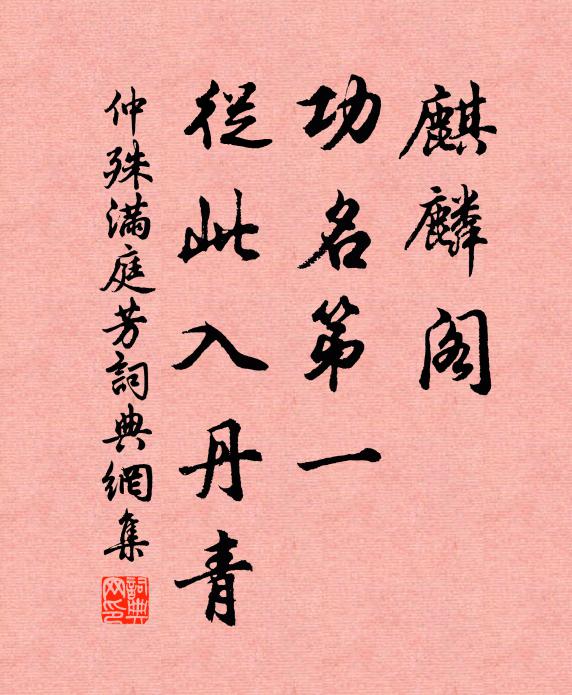 麒麟阁
功名第一
從此入丹青
仲殊滿庭芳詞典網集
詞典網印